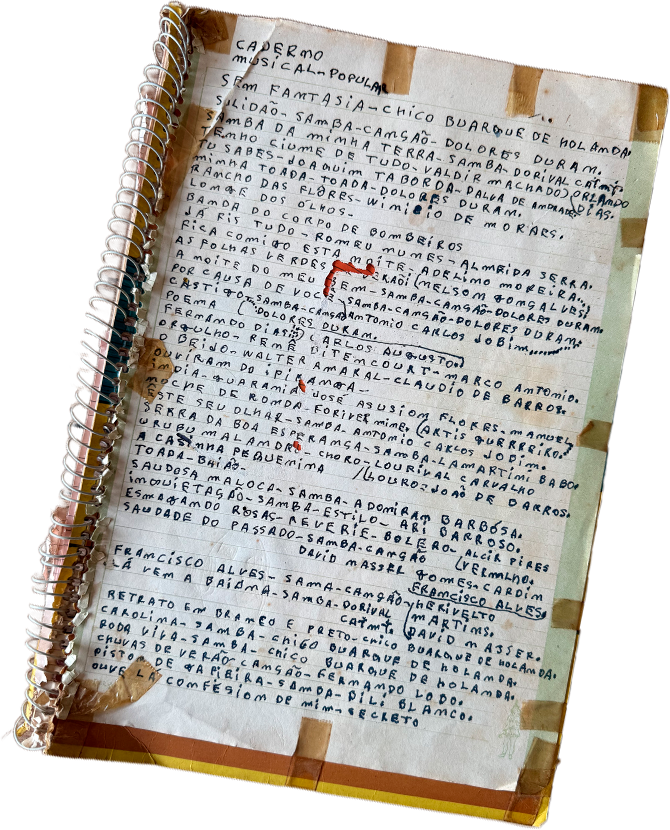 CADERMO
MUSICAL-POPULAR
SEM FANTASIA-CHICO BUARQUE DE HOLANDA.
SULIDÃO-SAMBA-CANGÃO-DOLORES DURAM.
SAMBA DA MINHA TERRA-SAMBA-DORIVAL CAIMI.
TEMHO CIUME DE TUDO-VALDIR MACHADO) ORLANDO DIAS.
TU SABES-JOAQUIM TABORDA-DALVA DE ANDRADE
MINHA TOADA-TOADA-DOLORES DURAM.
RANCHO DAS FLORES-WIMICIO DE MORAES.
LOMGE DOS OLHOS-
BANDA DO CORPO DE BOMBEIROS
JÁ FIS TUDO-ROMEU MUMES-ALMEIDA SERRA.
FICA COMIGO ESTA NOITE-ADELIMO MOREIRA.
AS FOLHAS VERDES (NELSOM GOMGALVES)
A MOITE DO MEU BEM-SAMBA-CANGÃO-DOLORES DURAM.
POR CAUSA DE VOCÊ SAMBA-CANGÃO-DOLORES DURAM.
CASTIGO-SAMBA-CANGÃO ANTONIO CARLOS JOBIM
POEMA (DOLORES DURAM.
FERNANDO DIAS CARLOS AUGUSTO.
ORGULHO-REMÊ BITEMCOURT-MARCO ANTONIO.
O BEIJO-WALTER AMARAL-CLAUDIO DE BARROS.
OUVIRAM DO IPIRAMGA
IMDIA-GUARAMIA JOSÉ ASUSIOM FLORES-MAMUEL
DE ROMDA-FORIVER MIME. (ARTIS GURRREIRO.
ESTE SEU OLHAR-SAMBA ANTOMIO CARLOS JOBIM.
SERRA DA BOA ESPERAMGA-SAMBA-LAMARTIMI BABO.
URUBU MALANDRO-CHORO-LOURIVAL CARVALHO
A CASINHA PEQUENIMA (LOURO-JOÃO DE BARROS.
TOADA-BAIÃO-
SAUDOSA MALOCA-SAMBA-ADOMIRAM BARBOSA.
IMQUIETAGÃO-SAMBA-ESTILO-ARI BARROSO.
ESMAGANDO ROSAS-REVERIE-BOLERO-ALCIR PIRES VERMALHO.
SAUDADE DO PASSADO-SAMBA-CANGÃO
DAVID MASSER GOMES-CARDIM
FRANCISCO ALVES-SAMA-CANGÃO FRANCISCO ALVES.
LÁ VEM A BAIAMA-SAMBA-DORIVAL CAIMI. HERIVELTO MARTIMS.
DAVID MASSER.
RETRATO EM BRAMCO E PRETO-CHICO BUARQUE DE HOLAMDA.
CAROLIMA-SAMBA-CHICO BUARQUE DE HOLAMDA.
RODA VIVA-SAMBA-CHICO BUARQUE DE HOLAMDA.
CHUVAS DE VERÃO-CANGÃO-FERNAMDO LOBO.
PISTOM DE GAFIEIRA-SAMBA-DILI BLANCO.
OUVE LA COMFÉSIOM DE MIM-SECRETO